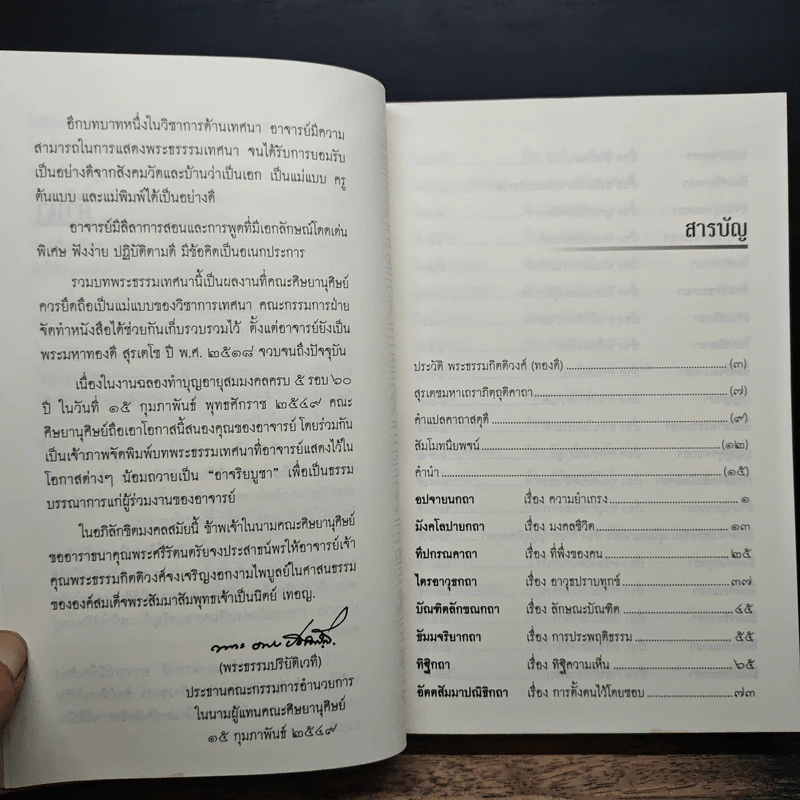 อีกบทบาทหนึ่งในวิชาการด้านเทศนา อาจารย์มีความ
สามารถในการแสดงพระธรรรมเทศนา จนได้รับการยอมรับ
เป็นอย่างดีจากสังคมวัดและบ้านว่าเป็นเอก เป็นแม่แบบ ครู
ต้นแบบ และแม่พิมพ์ได้เป็นอย่างดี
อาจารย์มีลีลาการสอนและการพูดที่มีเอกลักษณ์โดดเด่น
พิเศษ ฟังง่าย ปฏิบัติตามดี มีข้อคิดเป็นอเนกประการ
รวมบทพระธรรมเทศนานี้เป็นผลงานที่คณะศิษยานุศิษย์
ควรยึดถือเป็นแม่แบบของวิชาการเทศนา คณะกรรมการฝ่าย
จัดทำหนังสือได้ช่วยกันเก็บรวบรวมไว้ ตั้งแต่อาจารย์ยังเป็น
พระมหาทองดี สุรเตโช ปี พ.ศ. ๒๕๑๘ จวบจนถึงปัจจุบัน
เนื่องในงานฉลองทำบุญอายุสมมงคลครบ ๕ รอบ ๖๐
ปี ในวันที่ ๑๕ กุมภาพันธ์ พุทธศักราช ๒๕๔๙ คณะ
ศิษยานุศิษย์ถือเอาโอกาสนี้สนองคุณของอาจารย์ โดยร่วมกัน
เป็นเจ้าภาพจัดพิมพ์บทพระธรรมเทศนาที่อาจารย์แสดงไว้ใน
โอกาสต่างๆ น้อมถวายเป็น “อาจริยบูชา” เพื่อเป็นธรรม
บรรณาการแก่ผู้ร่วมงานของอาจารย์
ในอภิลักขิตมงคลสมัยนี้ ข้าพเจ้าในนามคณะศิษยานุศิษย์
ขออาราธนาคุณพระศรีรัตนตรัยจงประสาธน์พรให้อาจารย์เจ้า
คุณพระธรรมกิตติวงศ์จงเจริญงอกงามไพบูลย์ในศาสนธรรม
ขององค์สมเด็จพระสัมมาสัมพุทธเจ้าเป็นนิตย์ เทอญ.
(พระธรรมปริยัติเวที)
ประธานคณะกรรมการอำนวยการ
ในนามผู้แทนคณะศิษยานุศิษย์
๑๕ กุมภาพันธ์ ๒๕๔๙
สารบัญ
ประวัติ พระธรรมกิตติวงศ์ (ทองดี) (๓)
สุรเตชมหาเถราภิตฺถุติคาถา (๗)
คำแปลคาถาสดุดี (๙)
สัมโมทนียพจน์ (๑๒)
คำนำ (๑๕)
อปจายนกถา เรื่อง ความยำเกรง ๑
มังคโลปายกถา เรื่อง มงคลชีวิต ๑๓
ทีปกรณคาถา เรื่อง ที่พึ่งของคน ๒๕
ไตรอาวุธกถา เรื่อง อาวุธปราบทุกข์ ๓๗
บัณฑิตลักขณกถา เรื่อง ลักษณะบัณฑิต ๔๕
ธัมมจริยากถา เรื่อง การประพฤติธรรม ๕๕
ทิฐิกถา เรื่อง ทิฐิความเห็น ๖๕
อัตตสัมมาปณิธิกถา เรื่อง การตั้งตนไว้โดยชอบ ๗๓